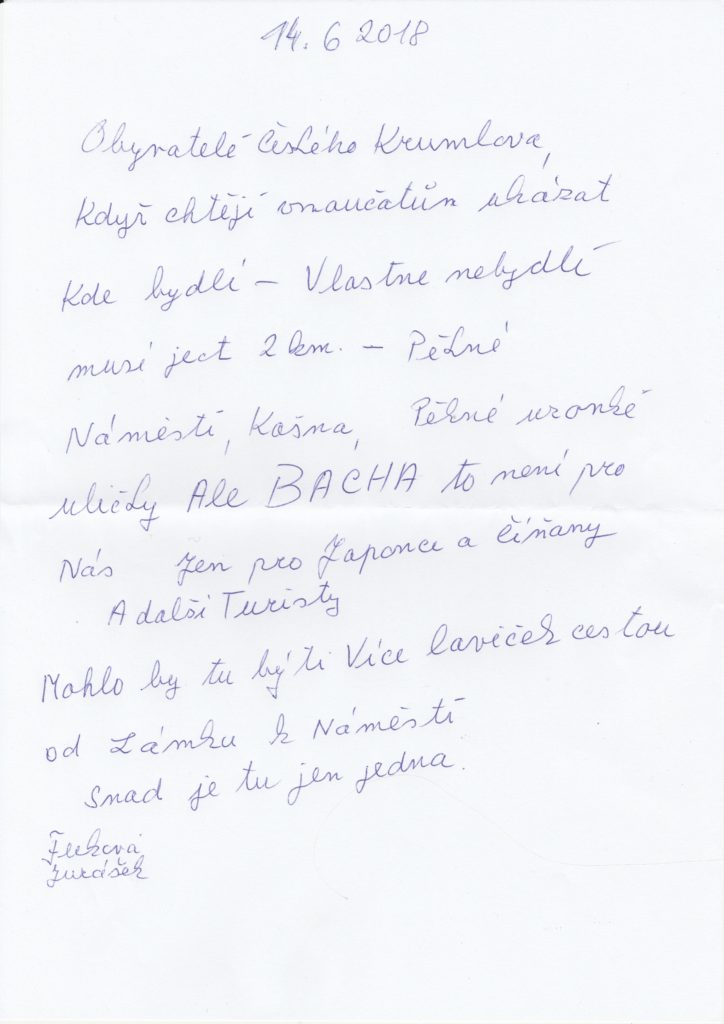 14. 6 2018
Obyvatelé Českého Krumlova,
Když chtějí vnoučatům ukázat
Kde bydlí – Vlastne nebydlí
musí ject 2 km. – Pěkné
Náměstí, Kašna, Pěkné uzonké
uličky Ale BACHA to není pro
Nás Jen pro Japonce a Číňany
A další Turisty
Mohlo by tu býti Více laviček cestou
od Zámku k Náměstí
Snad je tu jen jedna.
Jurášek